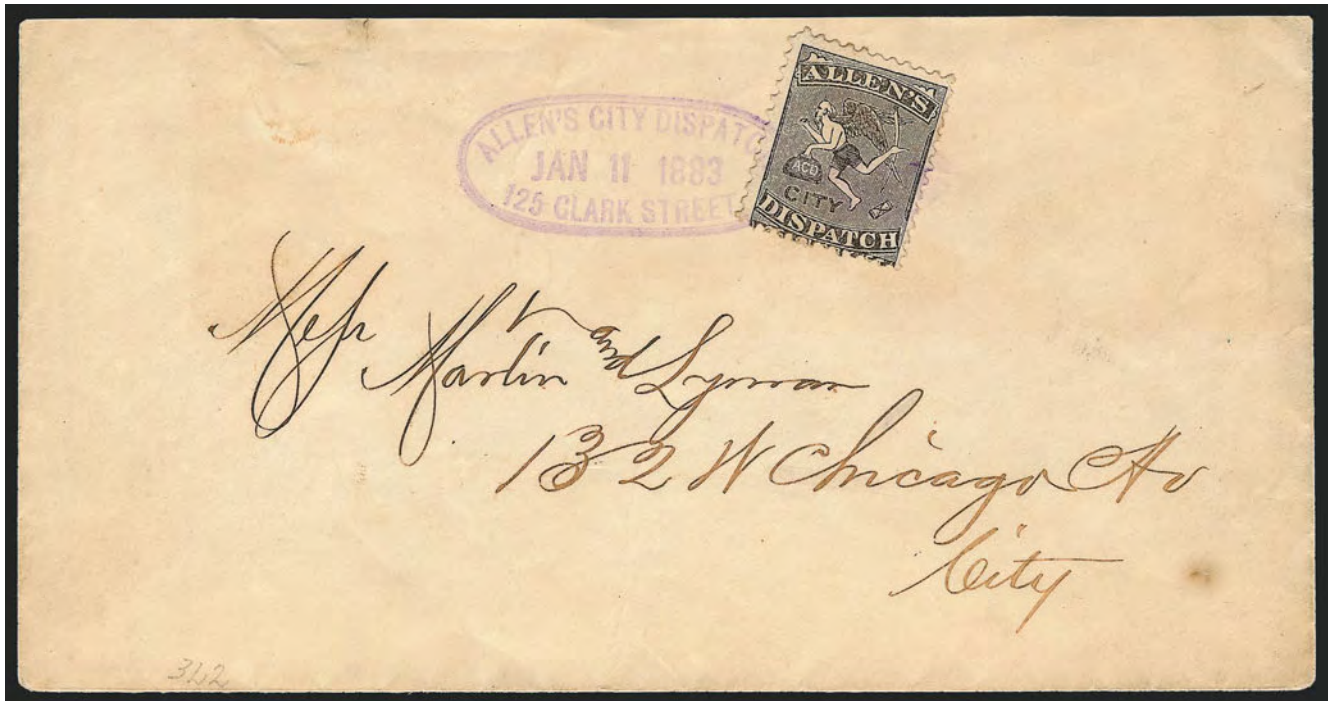 ALLEN'S CITY DISPATC
JAN 11 1883
125 CLARK STREET
ALLEN'S
ACD
CITY
DISPATCH
Mess
Martin and Lyman
132 W Chicago Av
City
342